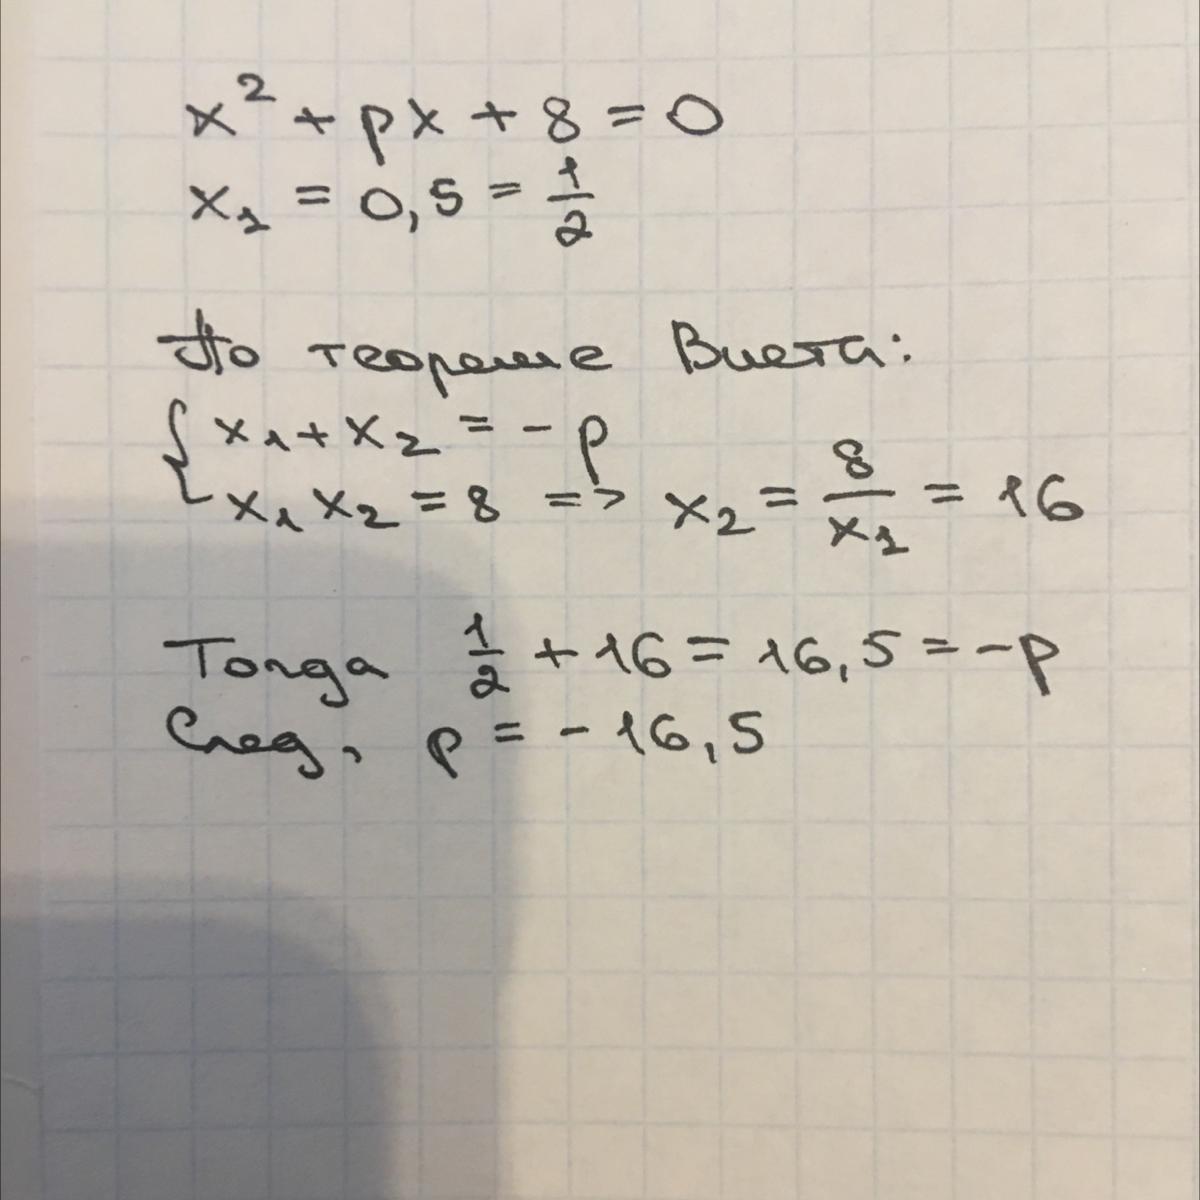 x² + px + 8 = 0
x₁ = 0,5 = 1/2
По теореме Виета:
{ x₁ + x₂ = - p
x₁ x₂ = 8 => x₂ = 8/x₁ = 16
Тогда 1/2 + 16 = 16,5 = - p
След, p = - 16,5